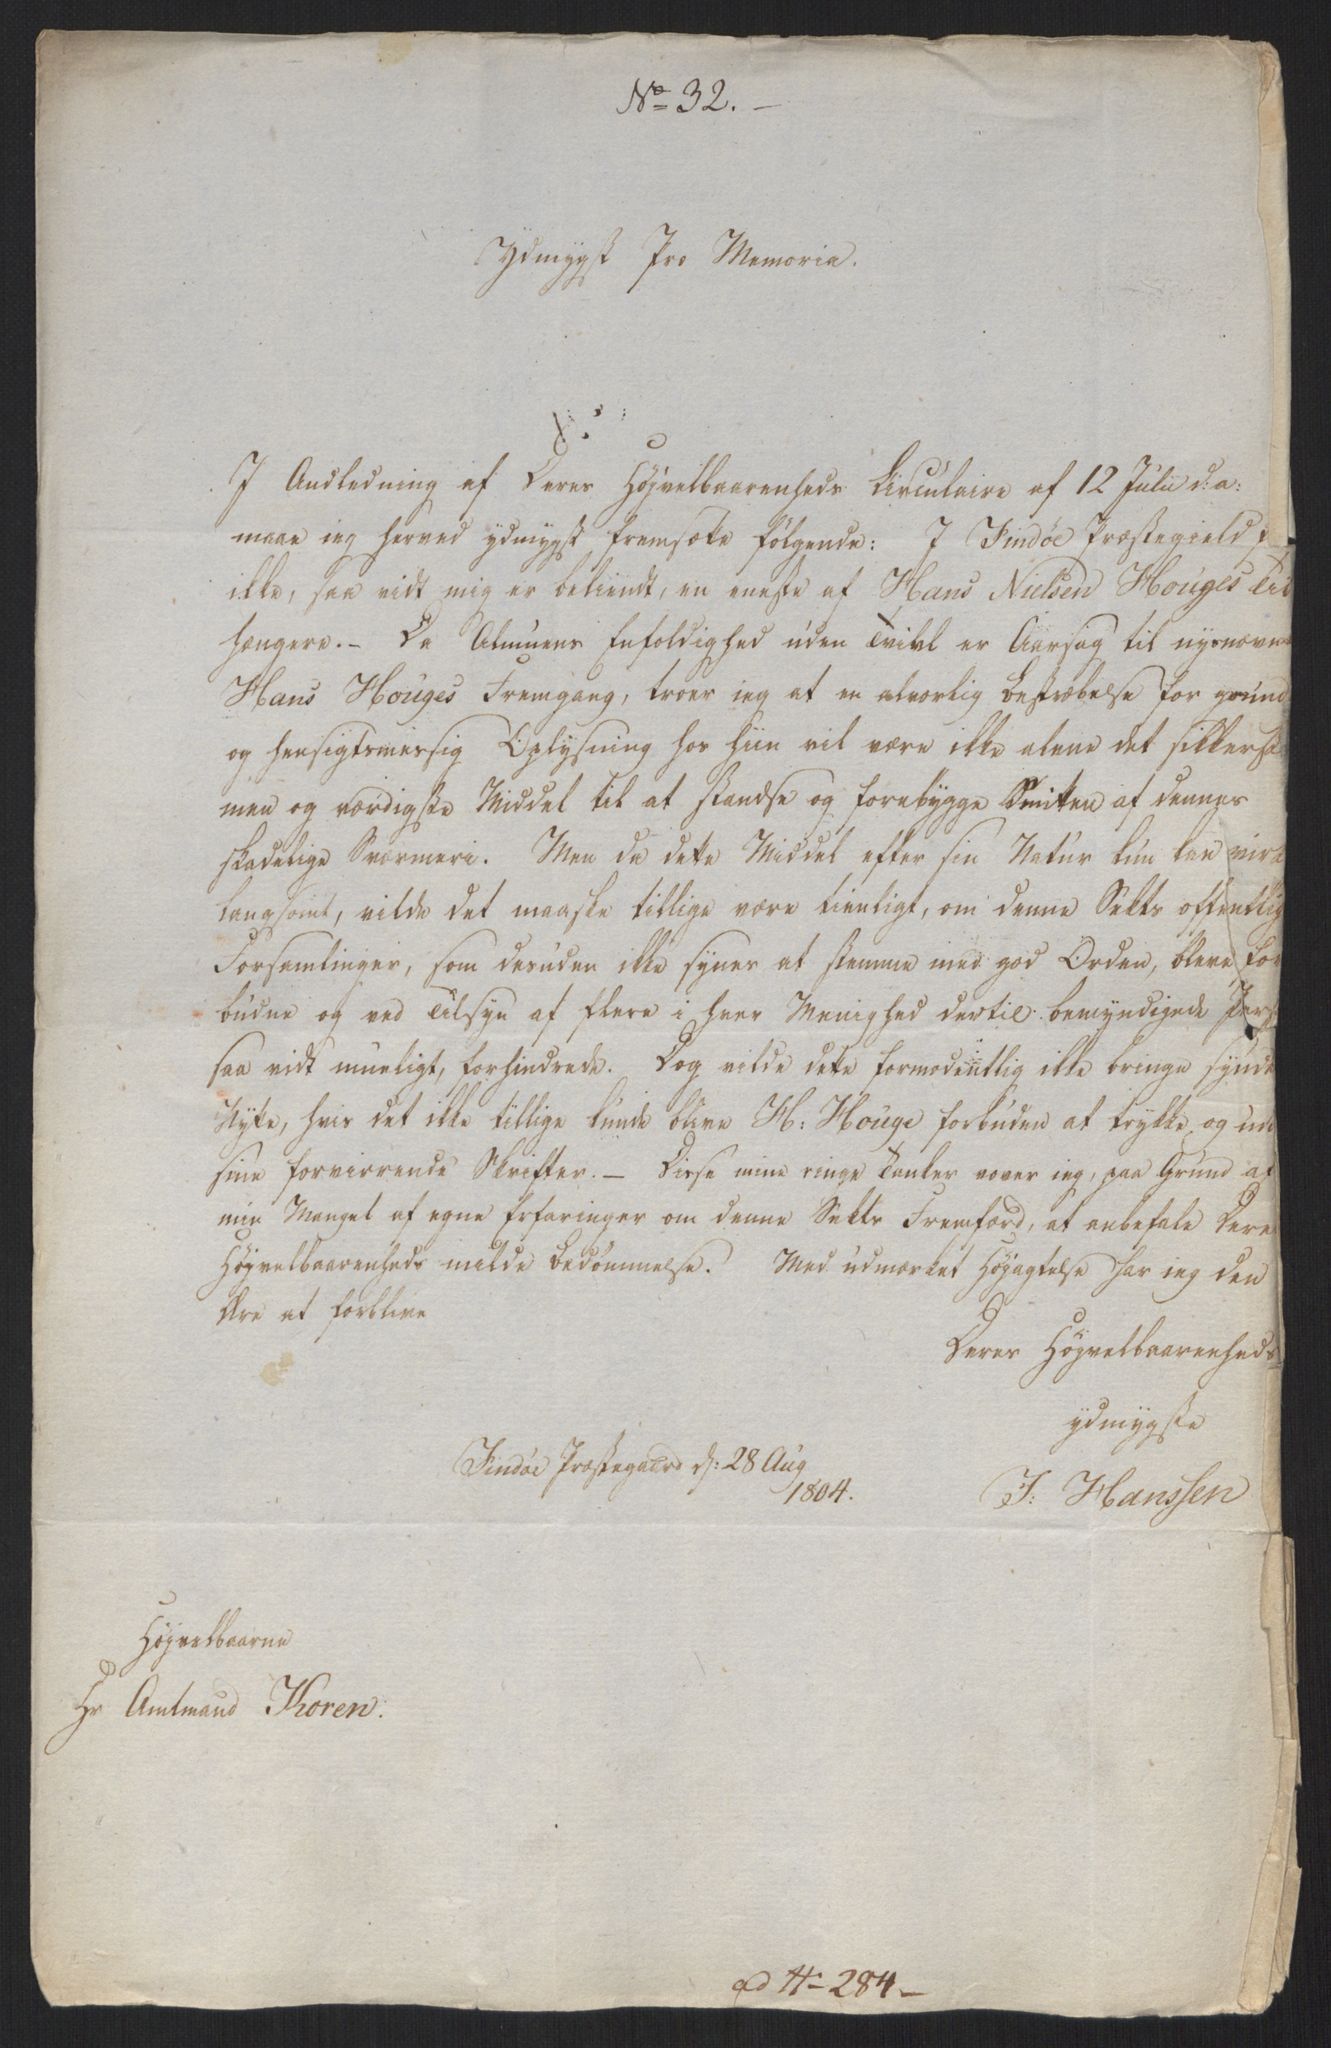 No 32. –
Ydmygst Pro Memoria.
I Andledning af Deres Højvelbaarenheds Circulaire af 12 Julii d: a:
maae ieg herved ydmygst fremsætte følgende: I Findöe Præstegield
ikke, saa vidt mig er bekiendt, en eneste af Hans Nielsen Houges Til
hængere. – Da Almuens Enfoldighed uden Tvivl er Aarsag til nysnævn
Hans Houges Fremgang, troer ieg at en alvorlig Bestræbelse for grund
og hensigtsmessig Oplysning hos hiin vil være ikke alene det sikkerste
men og værdigste Middel til at standse og forebygge Smitten af dennes
skadelige Sværmeri. Men da dette Middel efter sin Natur kun kan virke
langsomt, vilde det maaske tillige være tienligt, om denne Sekts offentlig
Forsamlinger, som desuden ikke synes at stemme med god Orden, bleve for
budne og ved Tilsyn af flere i hver Menighed dertil bemyndigede Pers
saa vidt mueligt, forhindrede. Dog vilde dette formodentlig ikke bringe synde
Nytte, hvis det ikke tillige kunde blive H: Houge forbuden at trykke og ud
sine forvirrende Skrifter. – Disse mine ringe Tanker vover ieg, paa Grund af
min Mangel af egne Erfaringer om denne Sekts Fremfærd, at anbefale Deres
Højvelbaarenheds milde Bedömmelse. Med udmærket Højagtelse har ieg den
Ære at forblive
Deres Højvelbaarenheds
ydmygste
Findöe Præstegaard d: 28 Aug
1804.
J: Hanssen
Højvelbaarne
Hr Amtmand Koren.
ad N– 284 –